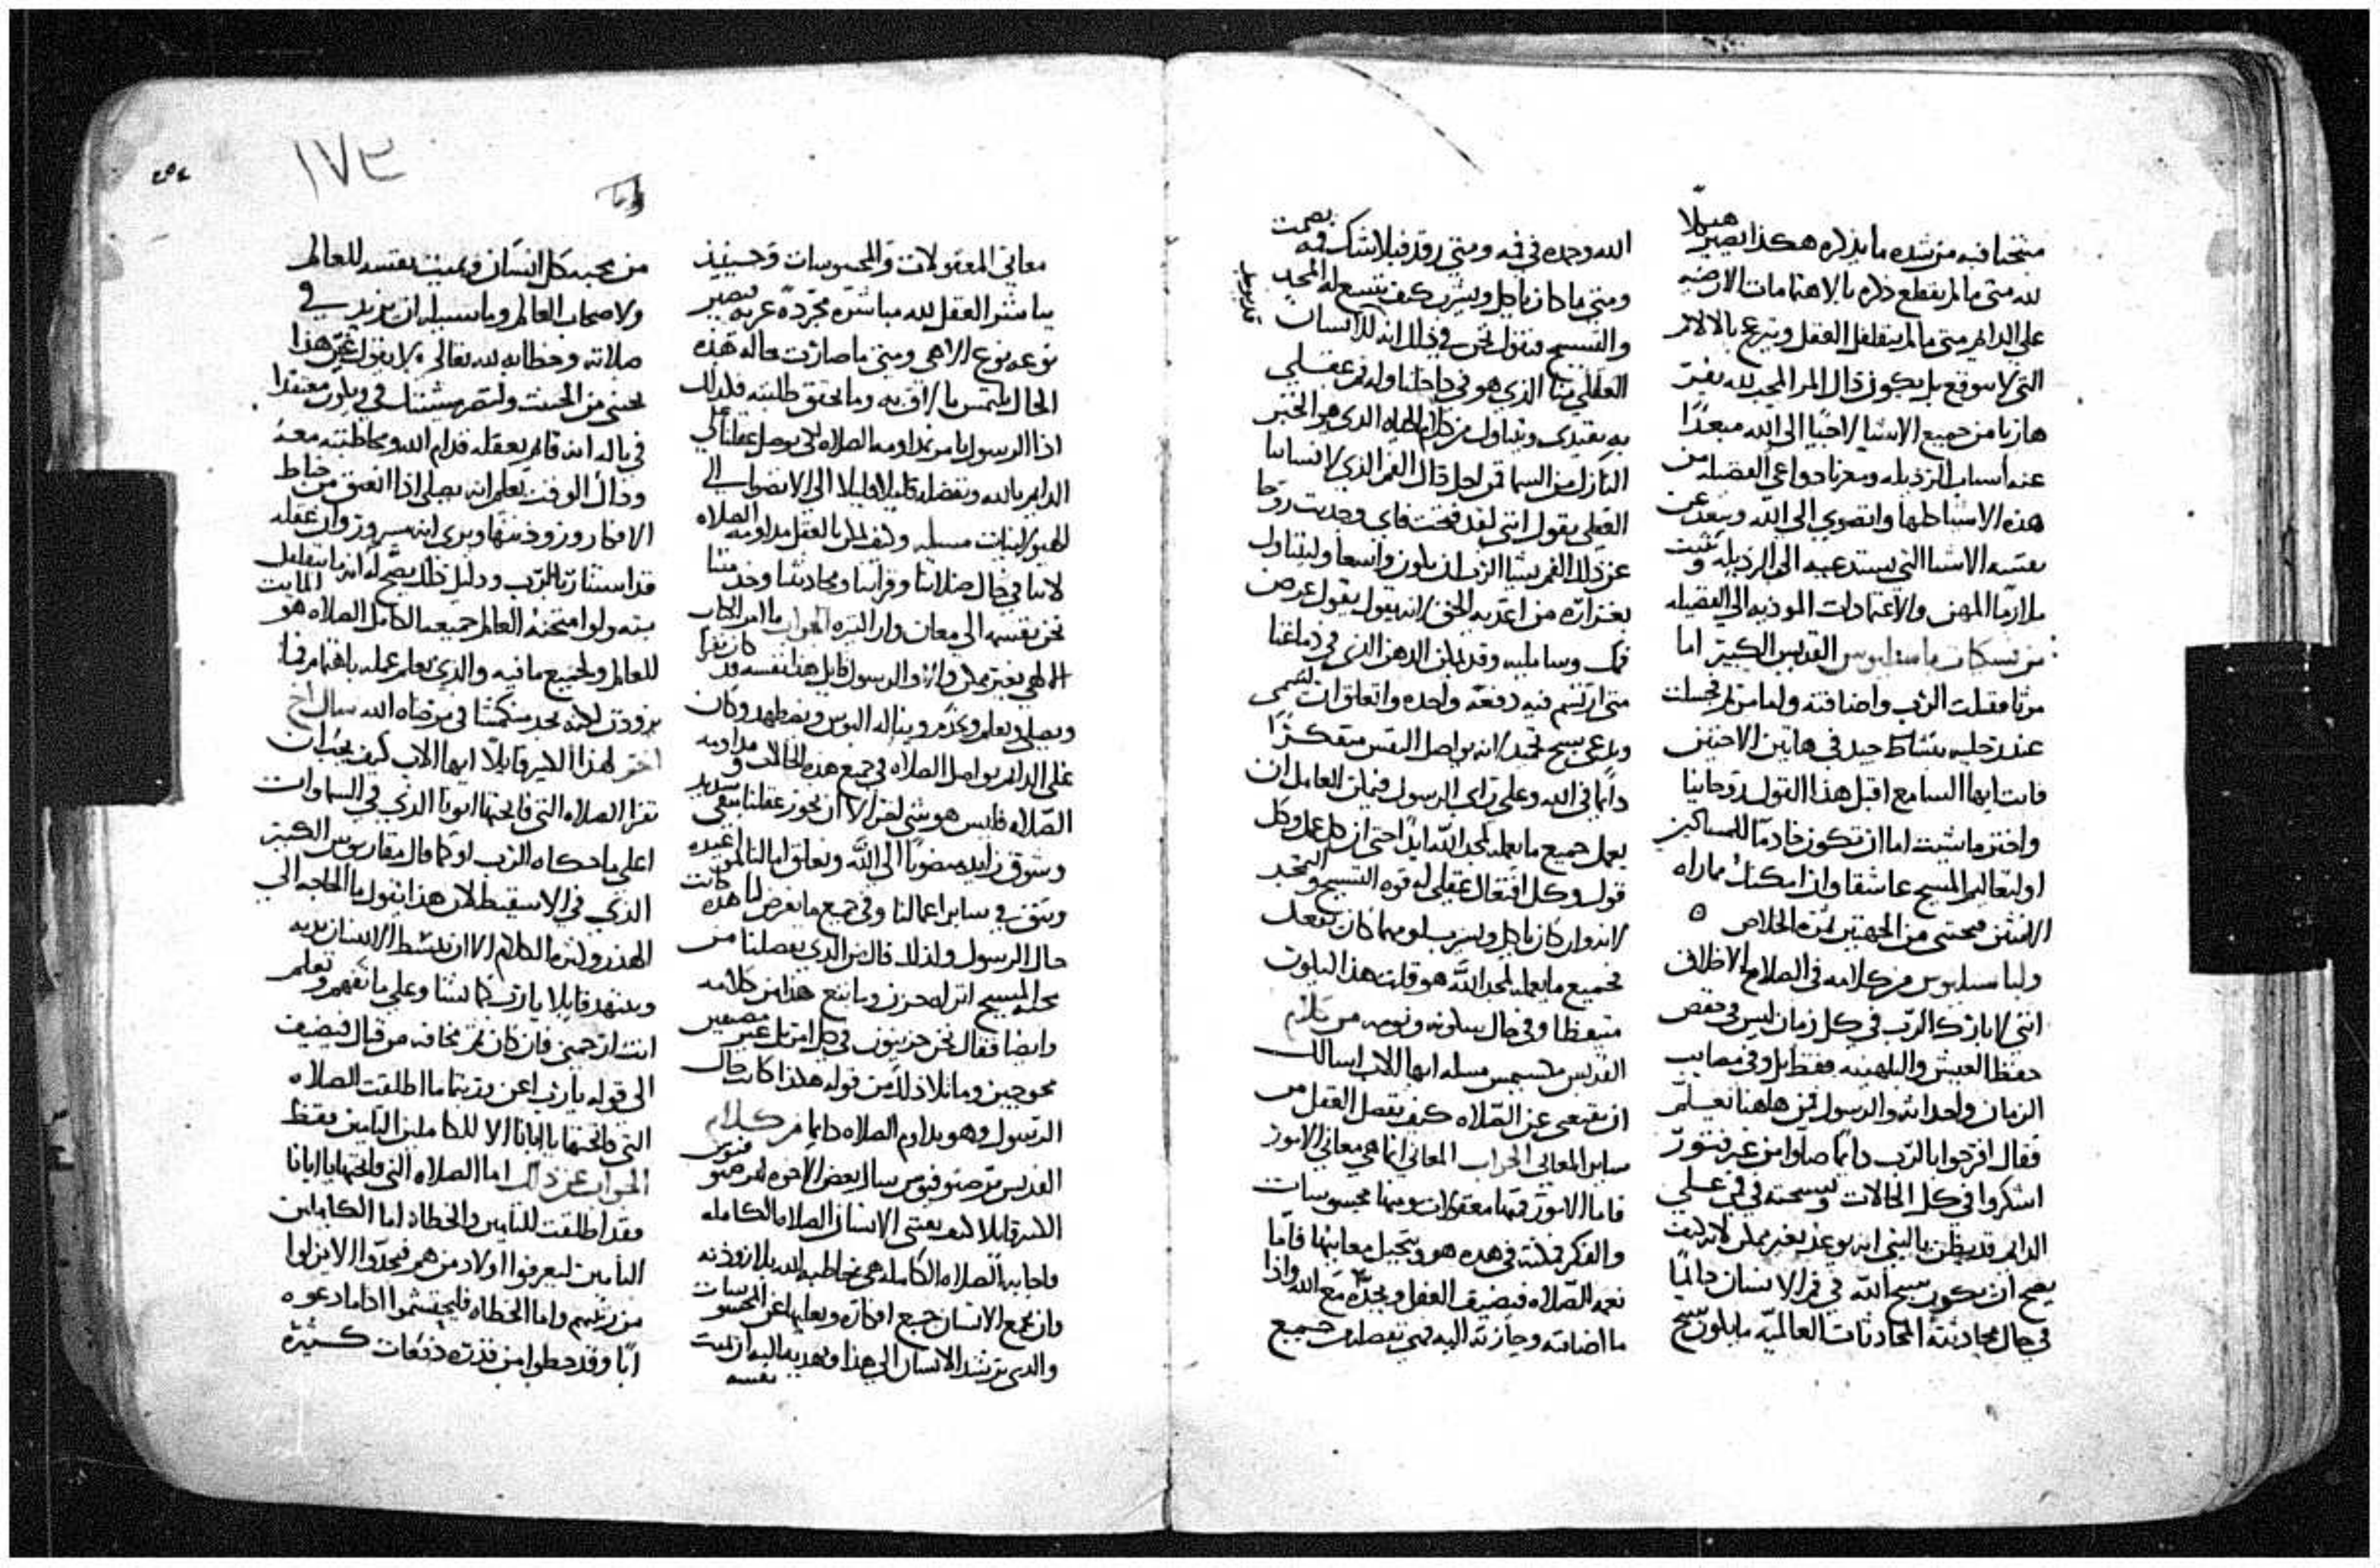 منتخبا فيه من شده ما يذكره هكذا يصير هيكلا
لله متى ما لم يقطع ذكره بالاهتمامات الارضيه
على الدايم متى ما لم يتقلقل العقل ويترعرع بالالام
التي لا يتوقع بل يكون ذاك المر المحب لله يفر
هاربا من جميع الاشيا لاجيا الى الله مبعدا
عنه اسباب الرذيله ومعزيا دواعي الفضيله من
هذه الاشيا كلها وانضوي الى الله ويبعد عن
نفسه الاشيا التي تستدعيه الى الرذيله ويثبت
ملازما المهن والاعتمادات الموديه الى الفضيله
من نسكيات باسيليوس القديس الكبير اما
مرثا فقبلت الرب واضافته ولما مريم فجلست
عند رجليه نشاط جيد في هاتين الاختين
فانت ايها السامع اقبل هذا القول روحانيا
واختر ما شيت اما ان تكون خادما للمساكين
او لتعاليم المسيح عاشقا وان امكنك مماراه
الاثنتين فتجتني من الجهتين ثمرة الخلاص ه
ولباسيليوس من كلامه في الصلاه الاطلاق
انني لابارك الرب في كل زمان ليس في خفض
حفظا العيش والبلهنيه فقط بل وفي مصايب
الزمان واحداثه والرسول فمن هاهنا تعلم
فقال افرحوا بالرب دائما صلوا من غير فتور
اشكروا في كل الحالات وتسبحته في فمي على
الدايم قد يظن بالنبي انه يوعد بغير ممكن لانه كيف
يصح ان يكون تسبيح الله في فم الانسان دائما
في حال محادثته المحادثات العالميه ما يكون تسبيح
الله وحده في فمه ومتى رقد فبلا شك فيه يصمت
ومتى ما كان ياكل ويشرب كيف يتسع له المجد
والتسبيح فنقول نحن في ذلك انه للانسان
العقلي منا الذي هو في داخلنا وله فم عقلي
به يغتذي ويتناول من كلام الحياه الذي هو الخبز
النازل من السما فمن اجل ذاك الفم الذي لانساننا
العقلي يقول انني لقد فتحت فاي وجذبت روحا
عن ذلك الفم يشا الرب ان يكون واسعا وليتناول
بغزاره من اغذيه الحق لانه يقول يقول عرض
فمك وساملیه وقد يمكن الذهن الذي في دماغنا
متى ارتسم فيه دفعه واحده واتعلق ان يسمى
ويدعى تسبيح تحتد لانه يواصل النفس متفكرا
دائما في الله وعلى راي الرسول فيمكن العامل ان
يعمل جميع ما يعمله لمجد الله ايدا حتى ان كل عمل وكل
قول وكل افتعال عقلي له قوه التسبيح والتمجيد
لانه وان كان ياكل ويشرب او مهما كان يفعل
فجميع ما يعمله لمجد الله هو قلت هذا ليكون
متيقظا وفي حال سكونه ونومه من كلام
القديس مكسيموس مسله ايها الاب اسالك
ان تفهمني عن الصلاه كيف يفصل العقل من
ساير المعاني الجواب المعاني انما هي معاني الامور
فاما الامور فمنها معقولات ومنها محسوسات
والفكر فمكنه في هذه هو وتخيل معانيها فاما
نعمه الصلاه فيضيف العقل وتجده مع الله واذا
ما اضافته وحازته اليه فهي تفصله من جميع
١٧٣
معاني المعقولات والمحسوسات وحينيذ
يباشر العقل لله مباشره مجردة عريه فيصير
نوعه نوع الاهي ومتى ما صارت حاله هذه
الحال يلتمس ما لاق به وما يحقق طلبته فلذلك
اذا الرسول يامر بمداومه الصلاه لكي يوصل عقلنا على
الدايم بالله ويفصله قليلا قليلا الى الانضوا الى
الهيولانيات مسله وكيف يمكن بالعقل مداومه الصلاه
لاننا في حال صلاتنا وقراتنا ومحادثتنا وخدمتنا
نحن نقسمه الى معان واراء كثيره الجواب ما امر الكتاب
الالهي بغير ممكن ولان والرسول قايل هذا نفسه قد كان يقرا
ويصلي ويعلم ويخدم ويناله البوس ويضطهد وكان
على الدايم يواصل الصلاه في جميع هذه الحالات ومداومه
الصلاه فليس هو شي اخر الا ان يجوز عقلنا بتقى شديد
وشوق زايد منضويا الى الله وتعلق امالنا لمن نعبده
ويثق في ساير اعمالنا وفي جميع ما يعرض لنا هذه كانت
حال الرسول ولذلك قال من الذي يفصلنا من
محبه المسيح اترى حزن وما يتبع هذا من كلامه
وايضا فقال نحن حزنيون في كل امر بل غير متضيقين
محوجين وما تلا ذلك من قوله هكذا كانت حال
الرسول وهو يداوم الصلاه دايما من كلام
القديس برصنوفيوس سال بعض الاخوه لبرصنو
الكبير قايلا كيف يقتني الانسان الصلاه الكامله
فاجابه الصلاه الكامله هي مخاطبه الله بلا زوذنه
وان يجمع الانسان جميع افكاره ويعليها عن المحسوسات
والذي يرشد الانسان الى هذا ويهديه اليه ان يميت
نفسه
من محبه كل انسان ويميت نفسه للعالم
ولاصحاب العالم وما سبيله ان يزيد في
صلاته وخطابه لله تعالى الا بقول نحن هذا
نجني من الخبيث ولتصر مشيتك في ويكون معتقدا
في باله انه قايم بعقله قدام الله ومخاطبته معه
وذاك الوقت يعلم انه يصلي اذا انعتق من خباط
الافكار وزوذنتها ويرى انه مسرور وان عقله
قد استنار بالرب ودليل ذلك يصح له انه ما يتقلقل
بته ولو امتحنه العالم جميعه الكامل الصلاه هو المايت
للعالم ولجميع ما فيه والذي يعلم عمله باهتمام فما
يزوذن لكنه يجد منكمشا في مرضاه الله سال اخ
اخر لهذا الكبير قايلا ايها الاب كيف يجب ان
تقرا الصلاه التي فاتحتها ابونا الذي في السماوات
اعلى ما حكاه الرب او كما قال مقاريوس الكبير
الذي في الاسقيط لان هذا يقول ما الحاجه الى
الهذر وكثره الكلام الا ان يبسط الانسان يديه
ويتنهد قايلا يا رب كما تشا وعلى ما تفهم وتعلم
انت ارحمني فان كان ثم مخافه من قتال فيضيف
الى قوله يا رب اعن وربما ما اطلقت الصلاه
التي فاتحتها يا ابانا الا للكاملين التامين فقط
الجواب عن ذلك اما الصلاه التي فاتحتها يا ابانا
فقد اطلقت للتامين والخطاه اما الكاملين
التامين ليعرفوا اولاد من هم فيجدوا الا يزلوا
من رتبهم واما الخطاه فليحتشموا اذا ما دعوه
ابا وقد حطوا من قدره دفعات كثيره